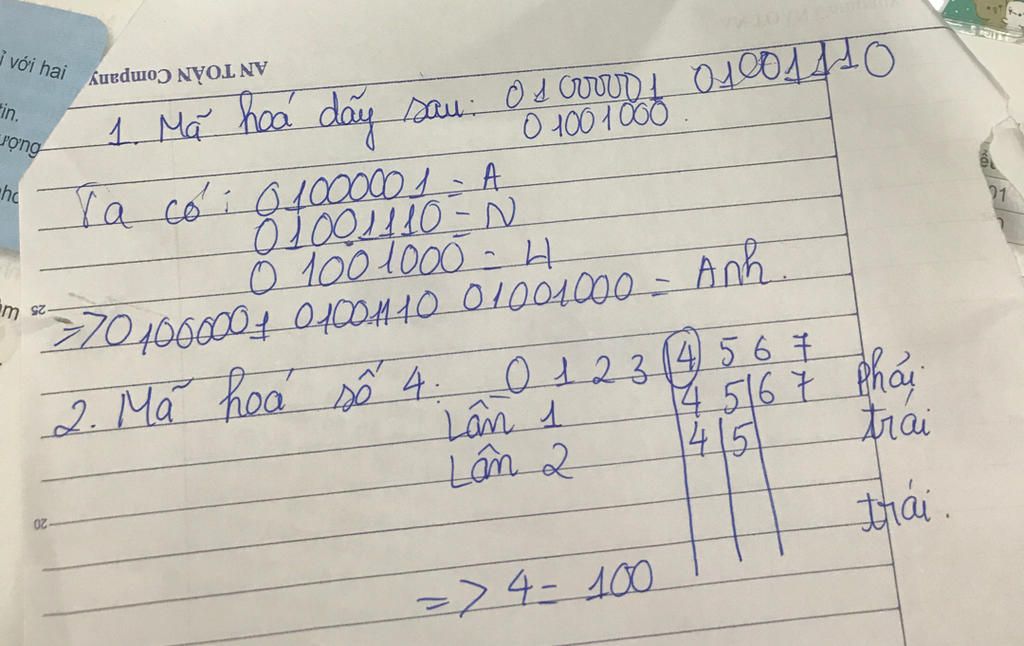 ỉ với hai
tin.
ượng
AN TOÀN Company
1. Mã hoá dãy sau: 01000001 01001110
01001000.
Ta có: 01000001 = A
01001110 = N
01001000 = H
=> 01000001 01001110 01001000 = Anh.
2. Mã hoá số 4: 0 1 2 3 4 5 6 7
Lần 1 4 5 6 7 phải
Lần 2 4 5 trái
trái.
=> 4 = 100
25
20
01